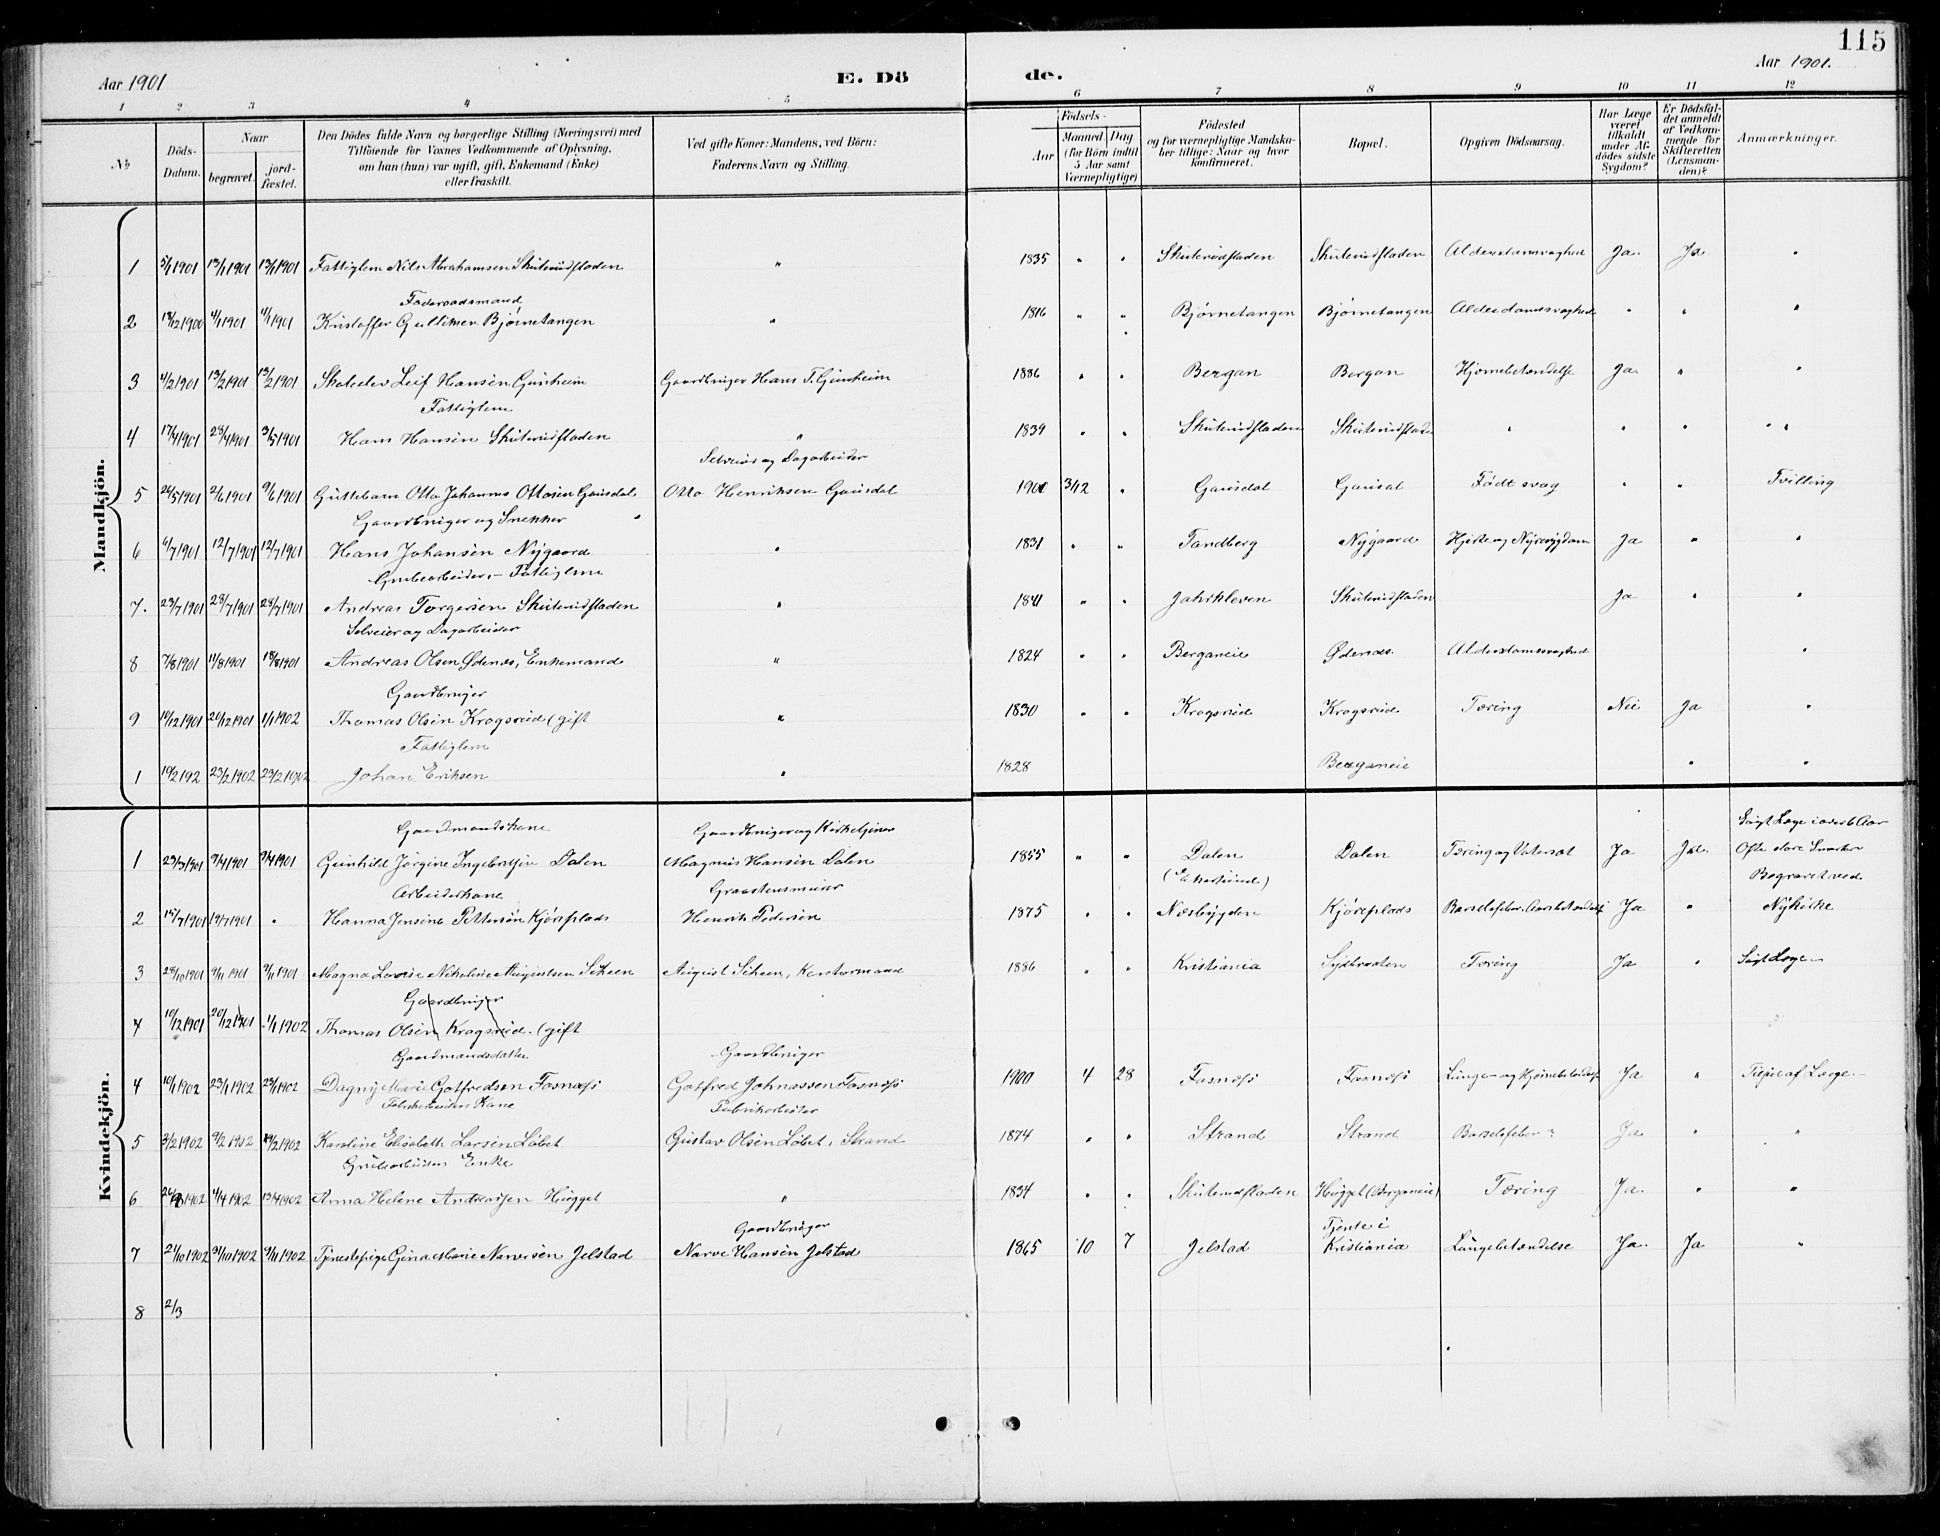 115
Aar 1901 E. Dö de. Aar 1901.
1 2 3 4 5 6 7 8 9 10 11 12
No Döds-Datum. Naar begravet. jordfæstet. Den Dödes fulde Navn og borgerlige Stilling (Næringsvei) med Tilföiende for Voxnes Vedkommende af Oplysning, om han (hun) var ugift, gift, Enkemand (Enke) eller fraskilt. Ved gifte Koner: Mandens, ved Börn: Faderens Navn og Stilling. Födsels- Aar Maaned Dag (for Börn indtil 5 Aar samt Værnepligtige) Födested og for værnepligtige Mandskaber tillige: Naar og hvor konfirmeret. Bopæl. Opgiven Dödsaarsag. Har Læge været tilkaldt under Afdödes sidste Sygdom? Er Dödsfaldet anmeldt af Vedkommende for Skifteretten (Lensmanden)? Anmærkninger.
Mandkjön.
1 5/1 1901 13/1 1901 13/1 1901 Fattiglem Nils Abrahamsen Skuterudfladen " 1835 " " Skuterudfladen Skuterudfladen Alderdomssvaghed Ja. Ja "
Föderaadsmand
2 18/12 1900 4/1 1901 4/1 1901 Kristoffer Gulliksen Bjørnetangen " 1816 " " Bjørnetangen Bjørnetangen Alderdomssvaghed " " "
3 4/2 1901 13/2 1901 13/2 1901 Skoleelev Leif Hansen Gunheim Gaardbruger Hans T. Gunheim 1886 " " Bergan Bergan Hjernebetændelse Ja " "
Fattiglem
4 17/4 1901 28/4 1901 3/5 1901 Hans Hansen Skuterudfladen " 1839 " " Skuterudfladen Skuterudfladen " " " "
Selveier og Dagarbeider
5 26/5 1901 2/6 1901 9/6 1901 Guttebarn Otto Johannes Ottosen Gausdal Otto Henriksen Gausdal 1901 3/12 " Gausdal Gausal Födt svag " " Tvilling
Gaardbruger og Snekker
6 6/7 1901 12/7 1901 12/7 1901 Hans Johansen Nygaard " 1831 " " Tandberg Nygaard Hjerte og Nyresygdom Ja " "
Grubearbeider. - Fattiglem
7. 23/7 1901 28/7 1901 28/7 1901 Andreas Torgersen Skuterudfladen " 1841 " " Jahrkleven Skuterudfladen Ja " "
Selveier og Dagarbeider
8 7/8 1901 11/8 1901 18/8 1901 Andreas Olsen Ødenæs, Enkemand " 1824 " " Berganeie Ødenæs. Alderdomssvaghed "
Gaardbruger
9 10/12 1901 20/12 1901 1/1 1902 Thomas Olsen Krogsrud (gift " 1830 " " Krogsrud Krogsrud Tæring Nei Ja "
Fattiglem
1 19/2 192 23/2 1902 23/2 1902 Johan Eriksen " 1828 Berganeie " "
Kvindekjön.
Gaardmandskone Gaardbruger og Kirketjener Søgt Læge i over 6 Aar
1 23/3 1901 9/4 1901 9/4 1901 Gunhild Jørgine Ingebretsen Dalen Magnus Hansen Dalen 1855 " " Dalen Dalen Tæring og Vatersot Ja Ja. Ofte store Smerter
Arbeiderkone Graastensmurer (Ekersund) Begravet ved
2 15/7 1901 19/7 1901 " Hanna Jensine Pettersen Kjørsplads Henrik Pedersen 1875 " " Næsbygden Kjørsplads Barselfeber Ja " Nykirke
3 28/10 1901 9/11 1901 9/11 1901 Magna Lovise Nikoline Augustsen Scheen August Scheen, Kontormand 1886 " " Kristiania Tæring Ja " Søgt Læge -
Gaardbruger
4 10/12 1901 20/12 1901 1/1 1902 Thomas Olsen Krogsrud. (gift
Gaardmandsdatter Gaardbruger
4 10/1 1902 23/1 1902 23/1 1902 Dagny Marie Gotfredsen Fosnæss Gotfred Johnassen Fosnæss 1900 4 28 Fosnæss Fosnæss Lunge- og Hjernebetændelse Ja " af Læge. -
Fabrikarbeiders Kone Fabrikarbeider
5 3/2 1902 9/2 1902 19/2 1902 Karoline Elisabeth Larsen Løbet Gustav Olsen Løbet, Strand 1874 " " Strand Strand Barselfeber? Ja " "
Grubearbeiders Enke
6 26/3 1902 4/4 1902 13/4 1902 Anna Helene Andreassen Hugget " 1834 " " Skuterudfladen Hugget (Berganeie) Tæring Ja. " "
Gaardbruger Tjente i
7 21/10 1902 31/10 1902 9/11 1902 Tjenestepige Gina Marie Narvesen Jelstad Narve Hansen Jelstad 1865 10 7 Jelstad Kristiania Lungebetændelse Ja. Ja "
8 2/3